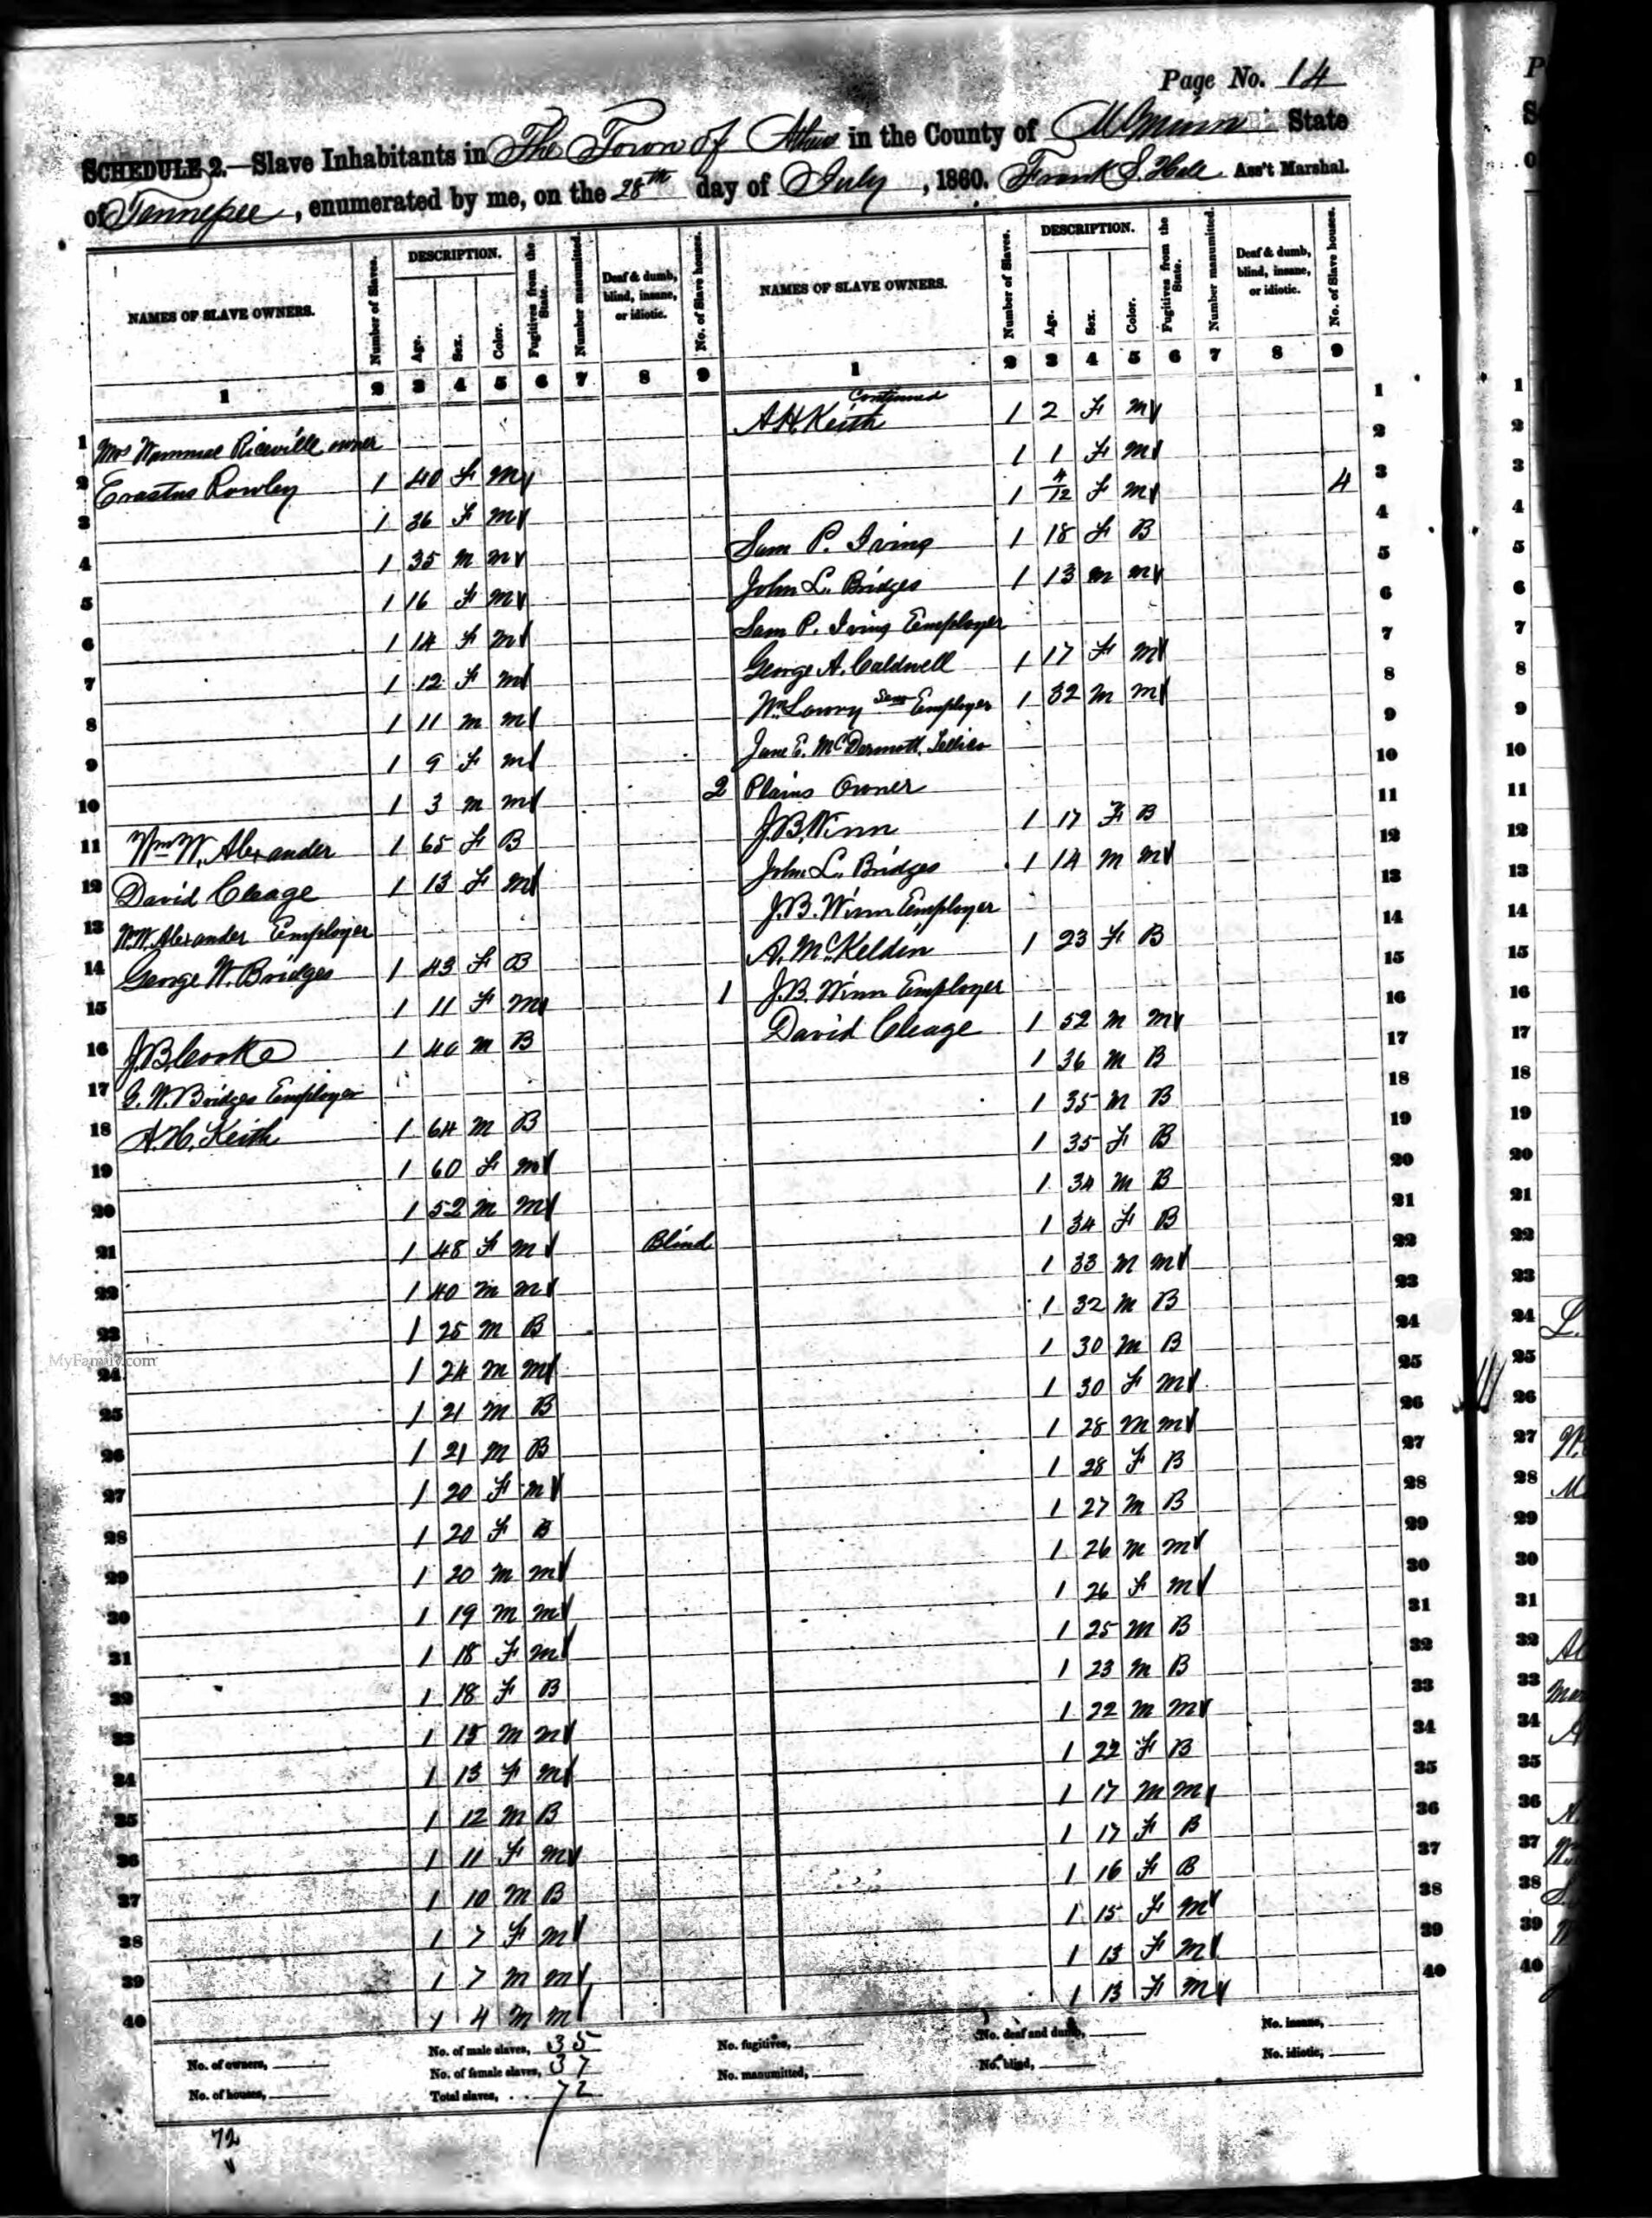 Page No. 14
SCHEDULE 2.—Slave Inhabitants in The Town of Athens in the County of McMinn State
of Tennessee, enumerated by me, on the 28th day of July, 1860. Frank S. Hale Ass't Marshal.
NAMES OF SLAVE OWNERS. Number of Slaves. DESCRIPTION. Age. Sex. Color. Fugitives from the State. Number manumitted. Deaf & dumb, blind, insane, or idiotic. No. of Slave houses.
1 2 3 4 5 6 7 8 9
1 Mrs Riceville owner
2 Erastus Rowley 1 40 F M
3 1 36 F M
4 1 35 M M
5 1 16 F M
6 1 14 F M
7 1 12 F M
8 1 11 M M
9 1 9 F M
10 1 3 M M 2
11 Wm W. Alexander 1 65 F B
12 David Cleage 1 13 F M
13 W.W. Alexander Employer
14 George W. Bridges 1 43 F B
15 1 11 F M 1
16 J.B. Cooke 1 40 M B
17 G. W. Bridges Employer
18 A. H. Keith 1 64 M B
19 1 60 F M
20 1 52 M M
21 1 48 F M Blind
22 1 40 M M
23 1 25 M B
24 1 24 M M
25 1 21 M B
26 1 21 M B
27 1 20 F M
28 1 20 F B
29 1 20 M M
30 1 19 M M
31 1 18 F M
32 1 18 F B
33 1 15 M M
34 1 13 F M
35 1 12 M B
36 1 11 F M
37 1 10 M B
38 1 7 F M
39 1 7 M M
40 1 4 M M
NAMES OF SLAVE OWNERS. Number of Slaves. DESCRIPTION. Age. Sex. Color. Fugitives from the State. Number manumitted. Deaf & dumb, blind, insane, or idiotic. No. of Slave houses.
1 2 3 4 5 6 7 8 9
A H Keith Continued 1 2 F M 1
1 1 F M 2
1 4/12 F M 4 3
Sam P. Irving 1 18 F B 4
John L. Bridges 1 13 M M 5
Sam P. Irving Employer 6
George A. Caldwell 1 17 F M 7
Wm Lowry Senr Employer 1 32 M M 8
Jane E. McDermott, Tellico 9
Plains Owner 10
J.B. Winn 1 17 F B 11
John L. Bridges 1 14 M M 12
J.B. Winn Employer 13
A. McKeldin 1 23 F B 14
J.B. Winn Employer 15
David Cleage 1 52 M M 16
1 36 M B 17
1 35 M B 18
1 35 F B 19
1 34 M B 20
1 34 F B 21
1 33 M M 22
1 32 M B 23
1 30 M B 24
1 30 F M 25
1 28 M M 26
1 28 F B 27
1 27 M B 28
1 26 M M 29
1 26 F M 30
1 25 M B 31
1 23 M B 32
1 22 M M 33
1 22 F B 34
1 17 M M 35
1 17 F B 36
1 16 F B 37
1 15 F M 38
1 13 F M 39
1 13 F M 40
No. of owners, No. of male slaves, 35 No. fugitives, No. deaf and dumb, No. insane,
No. of houses, No. of female slaves, 37 No. manumitted, No. blind, No. idiotic,
Total slaves, 72
72
MyFamily.com